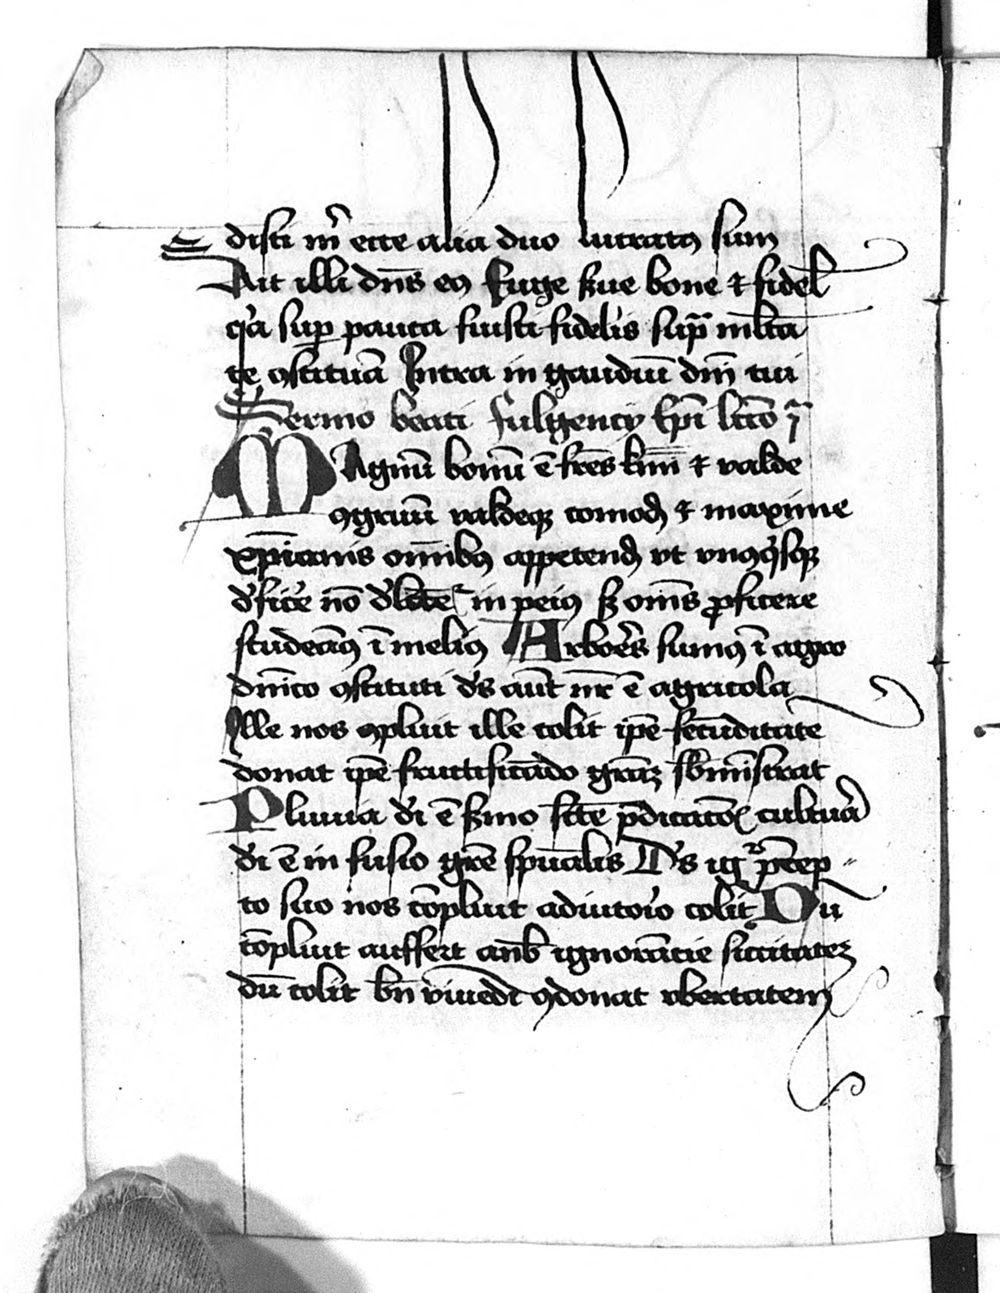 disti m̄ ecce alia duo lucratꝰ sum
Ait illi dn̄s eꝰ Euge ẜue bone ⁊ fidel
q'a suꝑ pauca fuisti fidelis sup̄ ml̄ta
te ꝯstituā Intra in gaudiū dn̄i tui
Sermo beati fulgencij ep̄i lc̄co j
MAgnū bonū ē fr̄es km̄i ⁊ valde
ꝯgruū valdeqꝫ comodū ⁊ maxime
xp̄ianis om̄ibꝰ appetendū vt vnꝰq'sqꝫ
d'fic'e nō in peiꝰ sꝫ om̄s ꝓficere
studeamꝰ ī meliꝰ Arbor̄es sumꝰ ī agro
dn̄ico ꝯstituti d's aūt nr̄ ē agricola
Ille nos ꝯpluit ille colit ip̄e fecūditate
donat ip̄e fructificādo grāꝫ sb̄mīstrat
Pluuia d'i ē ẜmo p̄dicatōis cultura
d'i ē in fusio grē spūalis D's igr̄ p̄cep
to suo nos cōpluit adiutor'o colit Dū
cōpluit auffert a nob̄ ignorācie siccitateꝫ
dū colit bn̄ viuēdi ꝯdonat vbertatem